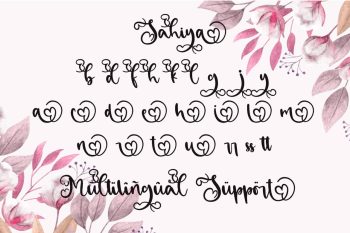 Sahiya
b d f h k l g j y
a c d e h i l m
n r t u n ss tt
Multilingual Support